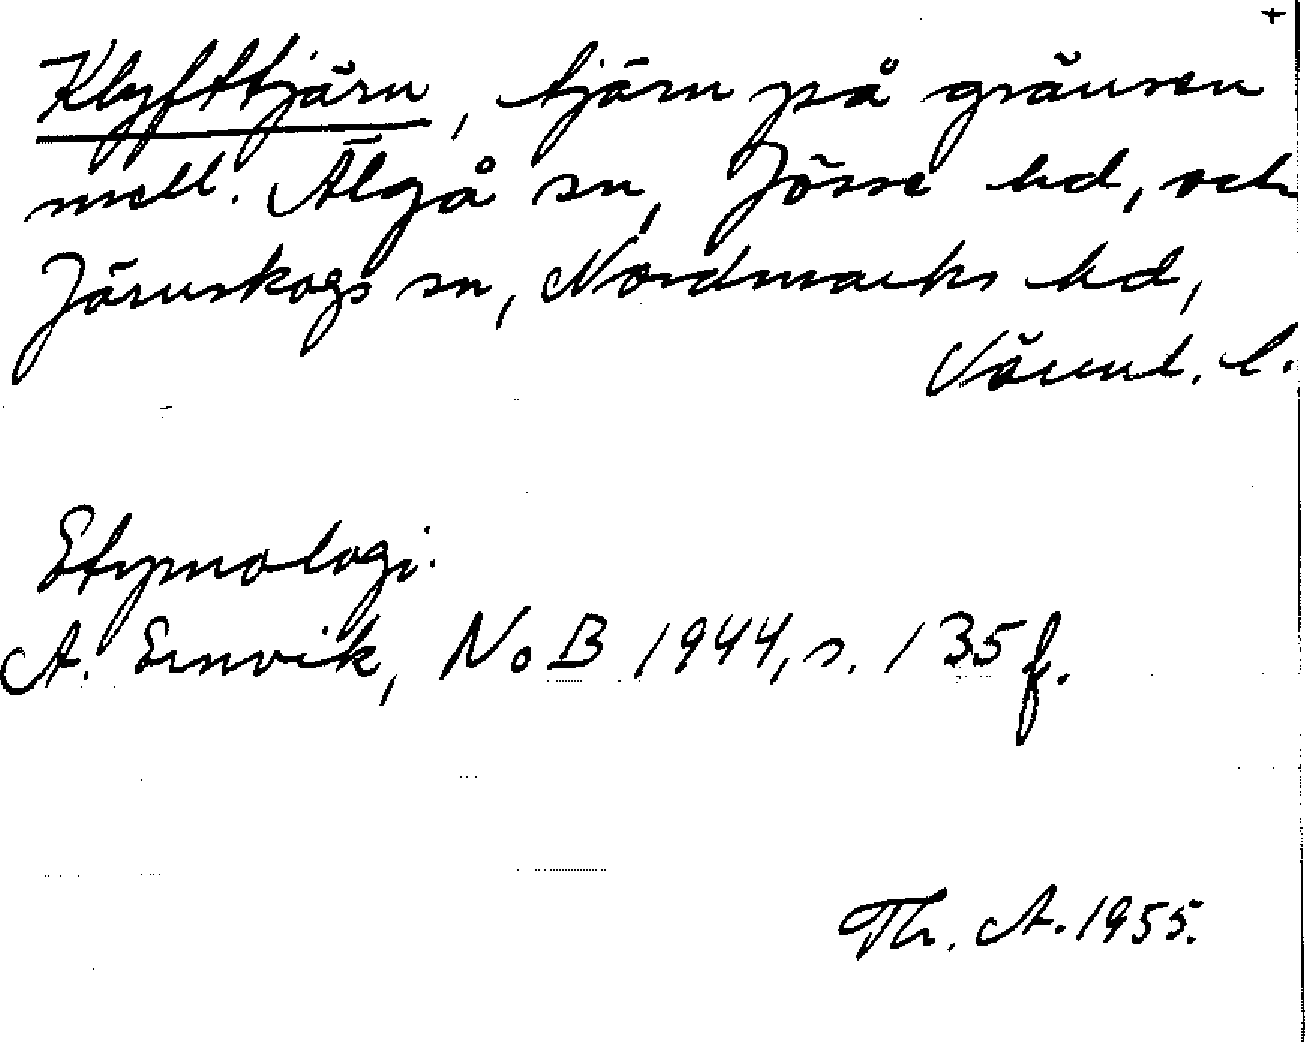 +
Klyfttjärn, tjärn på gränsen
mell. Älgå sn, Jösse hd, och
Järnskogs sn, Nordmarks hd,
Värml. l.
Etymologi.
A. Ernvik, NoB 1944, s. 135 f.
Th. A. 1955.